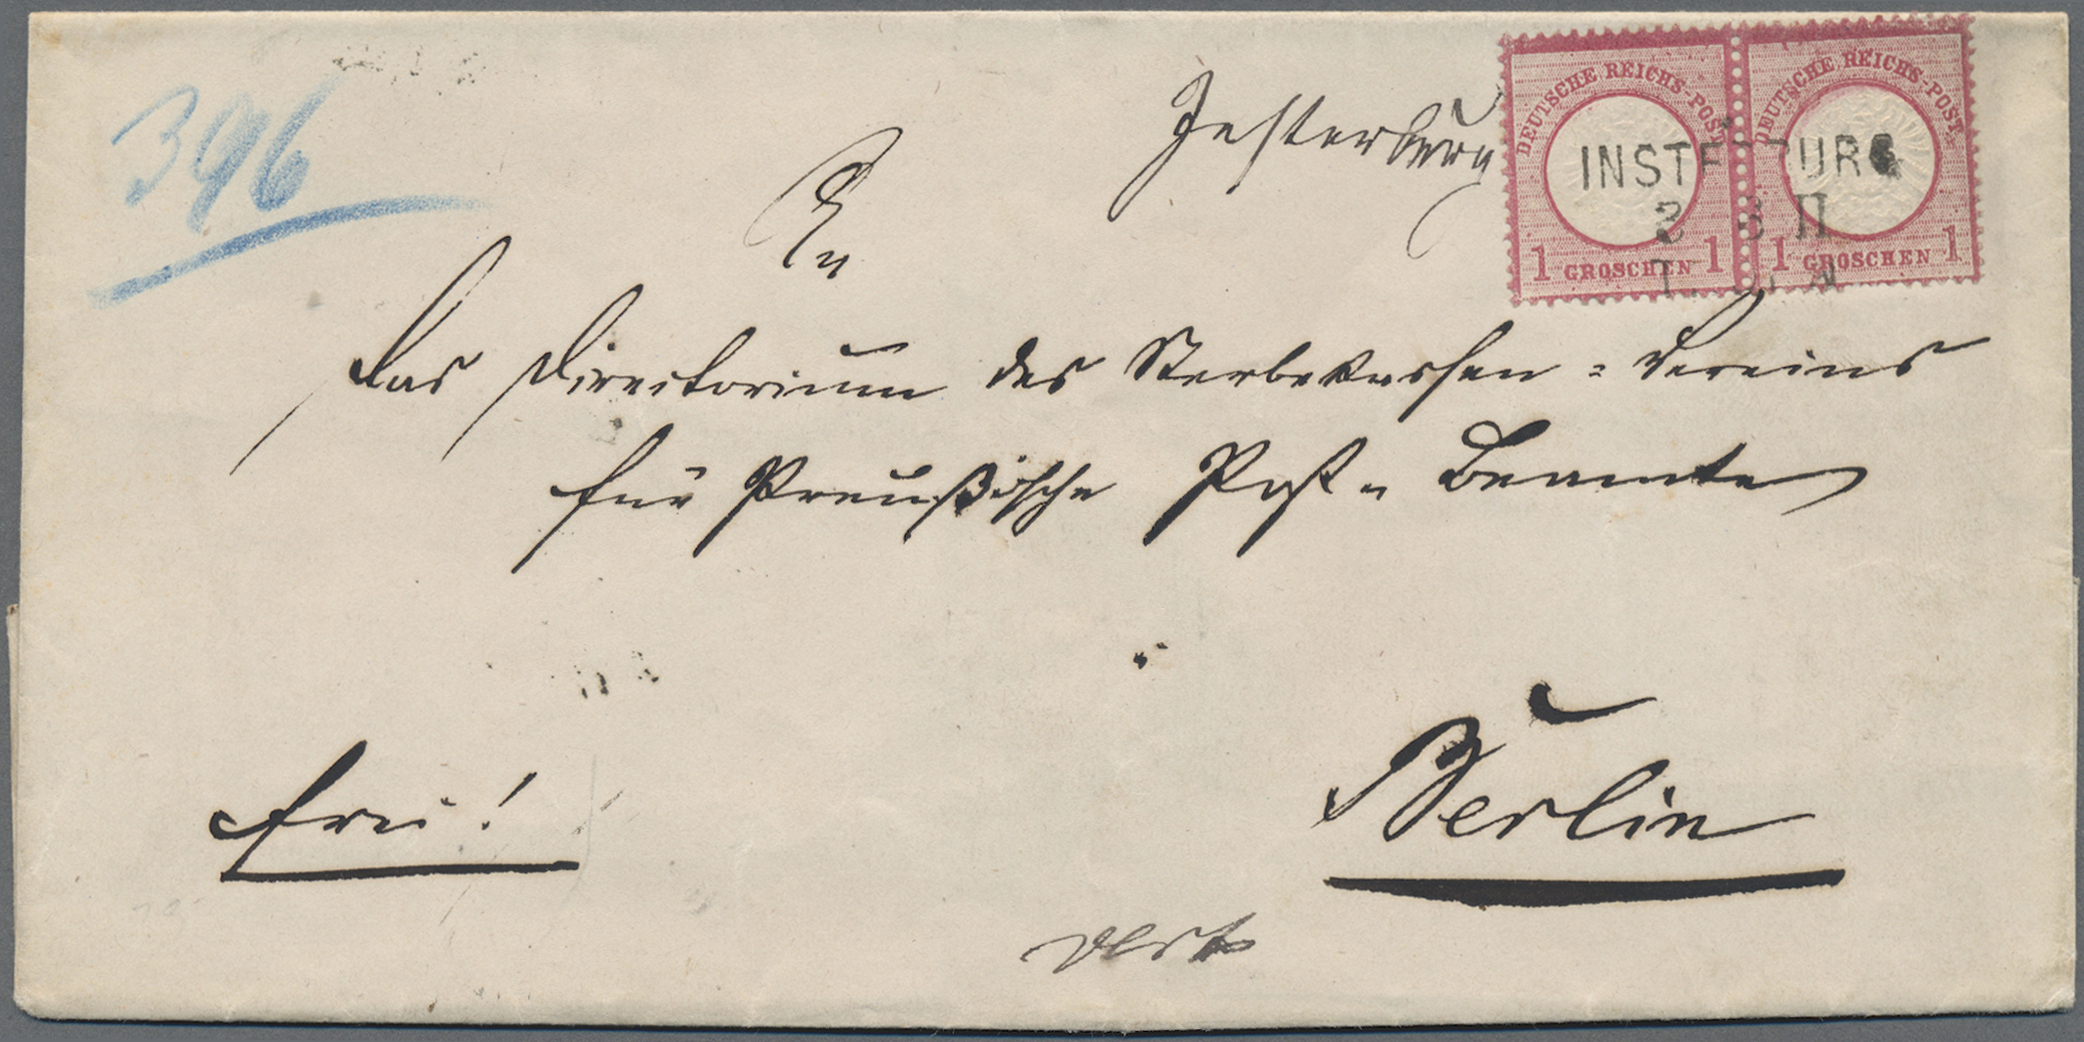 396
Insterburg
DEUTSCHE REICHS-POST
1 GROSCHEN 1
DEUTSCHE REICHS-POST
1 GROSCHEN 1
INSTERBURG
An
das Directorium des Sterbekassen=Vereins
für Preußische Post=Beamte
Berlin
frei!